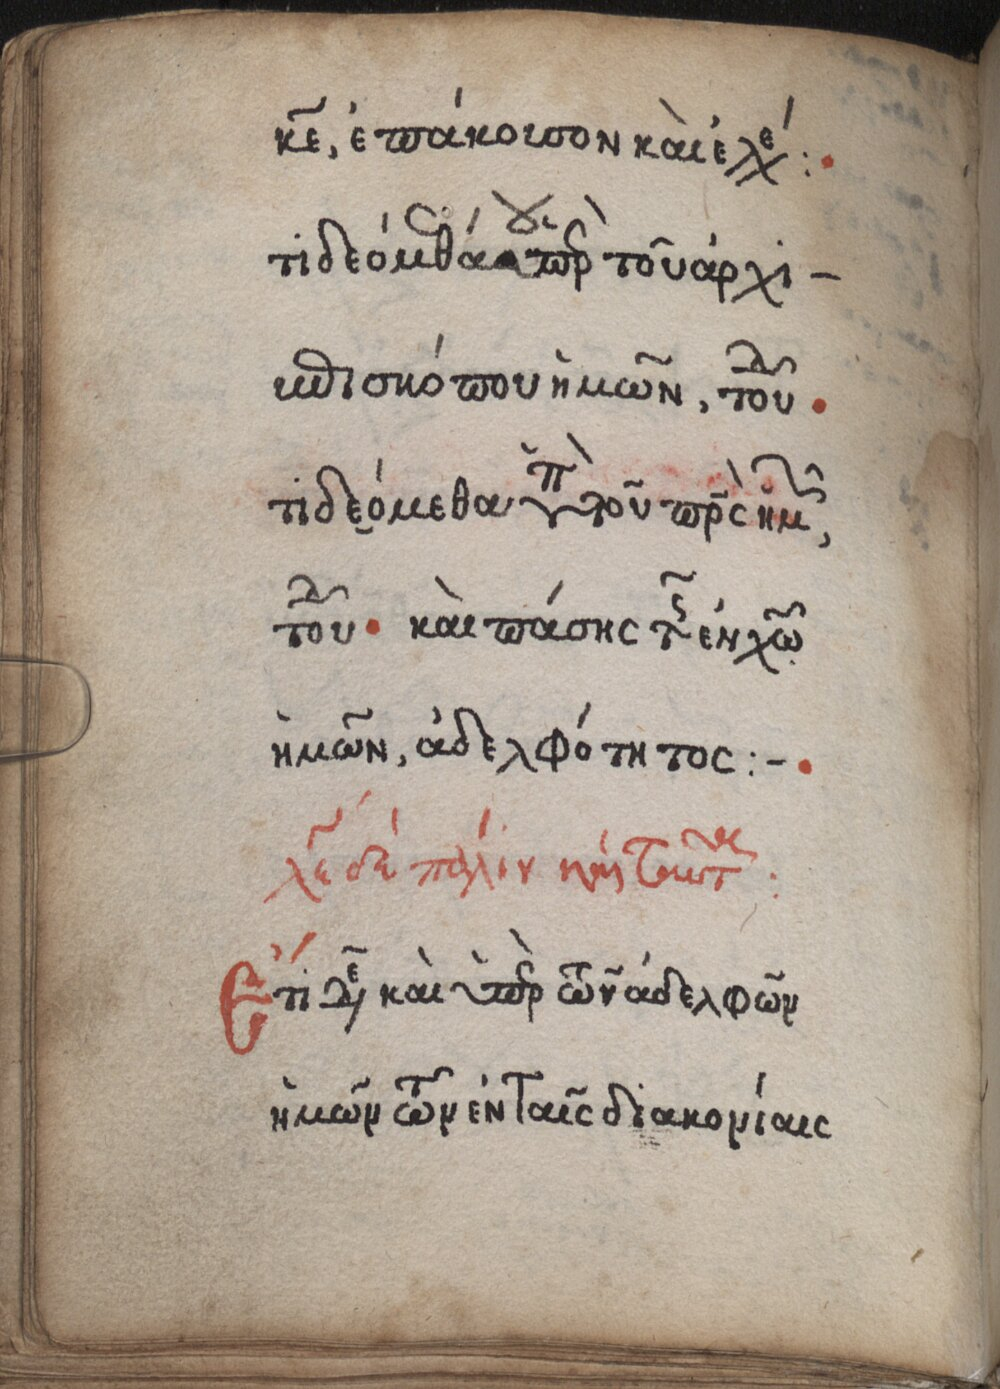 κε, ἐπάκουσον καὶ ἐλέ :·
τι δεόμεθά ὑπὲρ τοῦ ἀρχι –
επισκόπου ἡμῶν, τοῦ δ ·
τι δεόμεθα ὑπὲρ τοῦ πρς ἡμῶν,
τοῦ δ · καὶ πάσης τῆς ἐν χῶ
ἡμῶν, ἀδελφότητος :– ·
δὲ πάλιν
Ἔτι δε καὶ ὑπὲρ τῶν ἀδελφῶν
ἡμῶν τῶν ἐν ταῖς διακονίαις